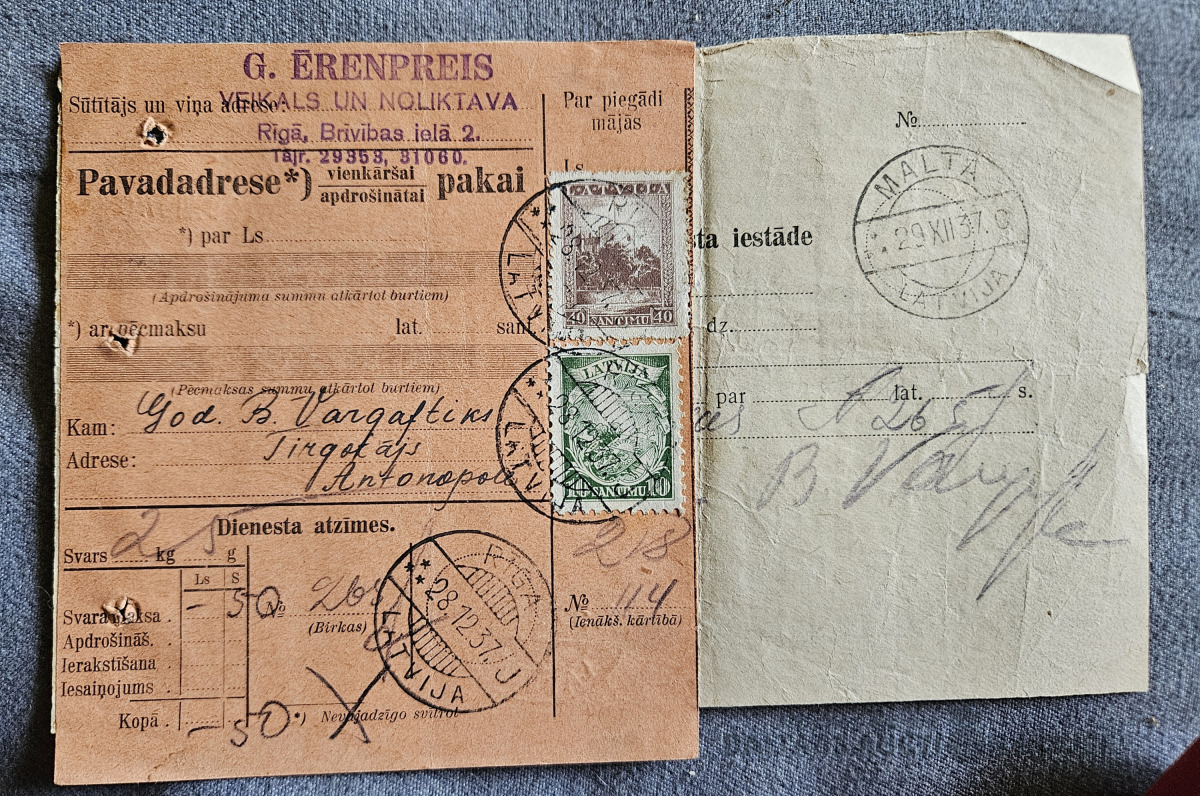 G. ĒRENPREIS
Sūtītājs un viņa adrese:
VEIKALS UN NOLIKTAVA
Rīgā, Brīvības ielā 2.
Tājr. 29353, 31060.
Par piegādi
mājās
Ls
Pavadadrese*) vienkāršai
apdrošinātai pakai
*) par Ls
(Apdrošinājuma summu atkārtot burtiem)
*) ar pēcmaksu lat. sant.
(Pēcmaksas summu atkārtot burtiem)
Kam: God. B. Vargaftiks
Adrese: Tirgotājs
Antonopole
40 SANTIMU 40
LATVIJA
10 SANTIMU 10
LATVIJA
Dienesta atzīmes.
Svars 2 kg 5 g
Ls S
Svara maksa - 50
Apdrošināš.
Ierakstīšana
Iesaiņojums
Kopā - 50
№
(Birkas)
218
№ 114
(Ienākš. kārtībā)
*) Nevajadzīgo svītrot
RĪGA
28.12.37. J
LATVIJA
№
MALTA
29 XII 37. C
LATVIJA
sta iestāde
dz.
par lat. s.
№ 265
B. Vargaft